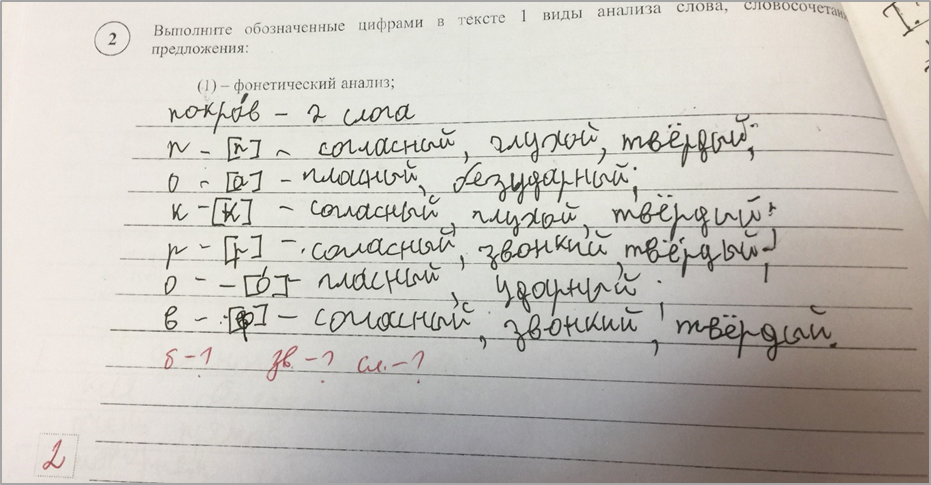 2
Выполните обозначенные цифрами в тексте 1 виды анализа слова, словосочетан
предложения:
(1) – фонетический анализ;
покро́в – 2 слога
п – [п] – согласный, глухой, твёрдый;
о – [а] – гласный, безударный;
к – [к] – согласный, глухой, твёрдый;
р – [р] – согласный, звонкий, твёрдый;
о – [о́] – гласный, ударный;
в – [ф] – согласный, звонкий, твёрдый.
б – ? зв. – ? сл. – ?
2